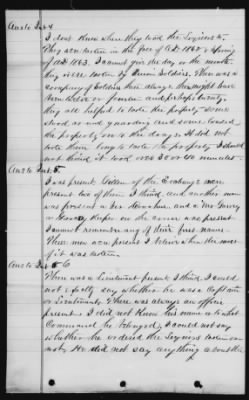 Ans to Int 4
I dont know when they took the
They were taken in the fall of 1862 & Spring
of 1863. I cannot give the day or the month
they were taken by Union Soldiers. There was a
company of Soldiers there always there might have
been twelve or fourteen and perhaps twenty,
they all helped to take the property some
stood as and guarding and some loaded
the property on to the It did not
take them long to take the property I should
not think it took over 30 or 40 minutes.
Ans to Int 5.
I was present of the were
present two of them I think, and another man
was present a and a Mr
Harvey on the was present
I cannot remember any of their first names.
These men were present I believe when the most
of it was taken.
Ans to Int 6
There was a Lieutenant present I think. I could
not safely say whether he was a Captain
or Lieutenant. There was always an officer
present. I did not know his name or to what
Command he belonged, I could not say
whether he ordered the taken or
not, He did not say anything about the